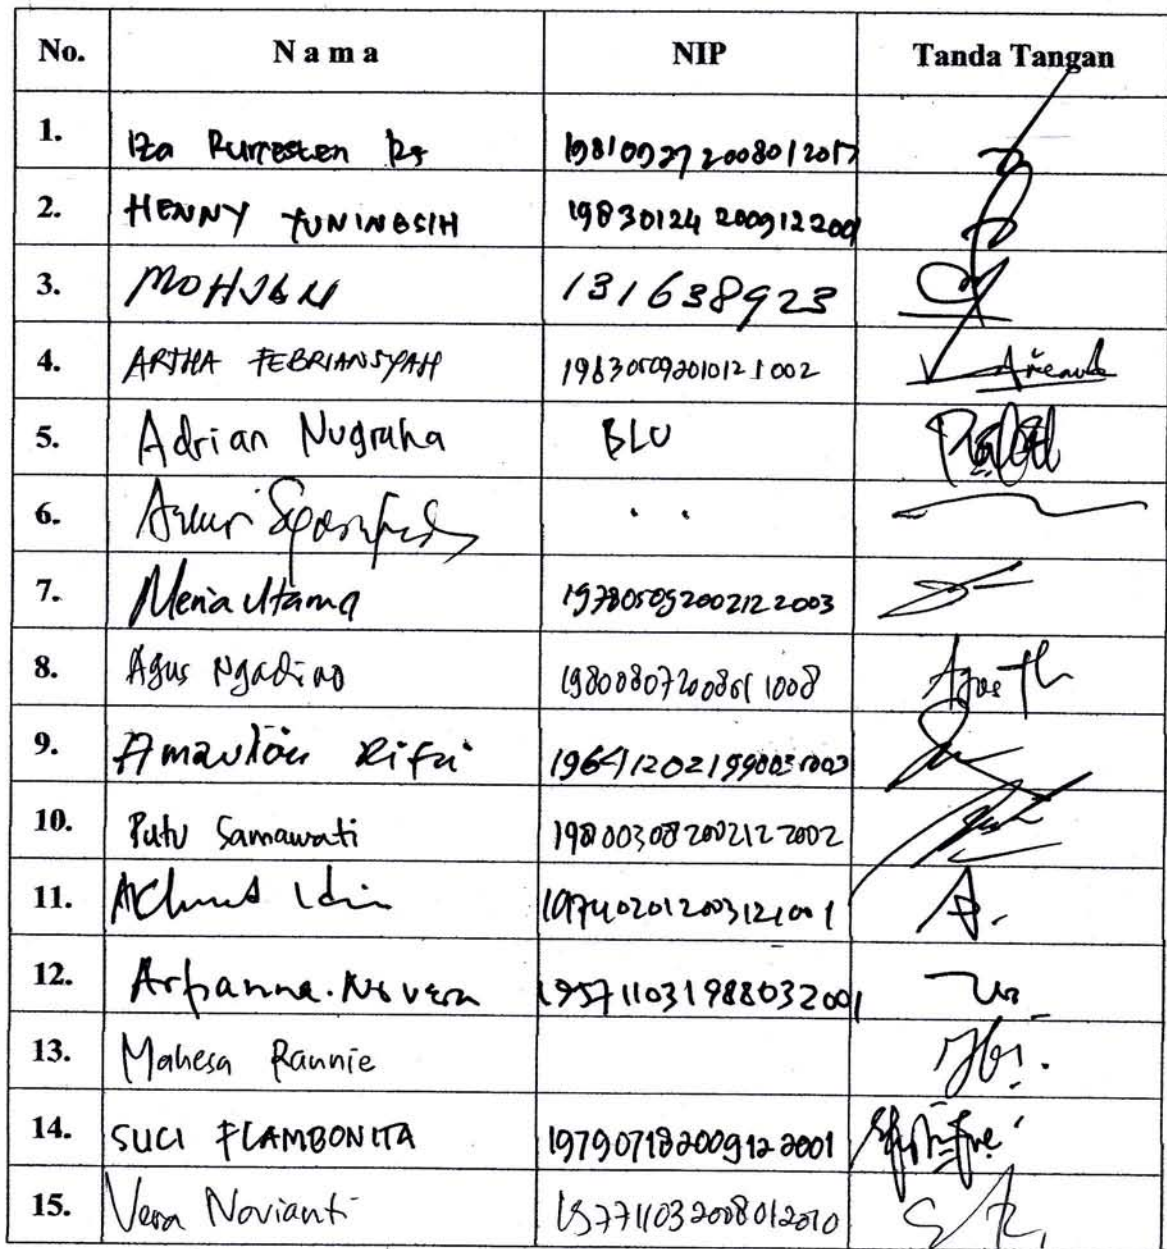 No. N a m a NIP Tanda Tangan
1. Iza Rumesten RS 198109272008012013
2. HENNY YUNINGSIH 19830124 200912200
3. MOHJAN 131638923
4. ARTHA FEBRIANSYAH 198305092010121002
5. Adrian Nugraha BLU
6.
7. Meria Utama 197805092002122003
8. Agus Ngadino 198008072008011008
9. Amzulian Rifai 196412021990031003
10. Putu Samawati 198003082002122002
11. 197402012003121001
12. Arfianna Novera 195711031988032001
13. Mahesa Rannie
14. SUCI FLAMBONITA 197907182009122001
15. Vera Novianti 197711032008012010